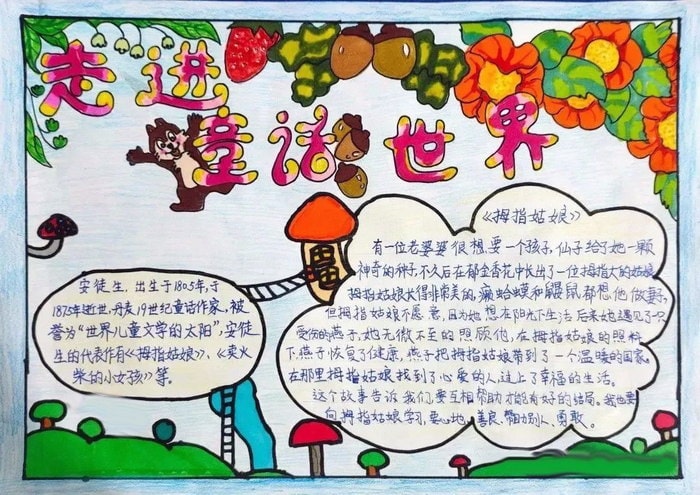 走进
童话世界
安徒生,出生于1805年,于
1875年逝世,丹麦19世纪童话作家,被
誉为“世界儿童文学的太阳”,安徒
生的代表作有《拇指姑娘》、《卖火
柴的小女孩》等。
《拇指姑娘》
有一位老婆婆很想要一个孩子,仙子给了她一颗
神奇的种子,不久后在郁金香花中长出了一位拇指大的姑娘
拇指姑娘长得非常美的,癞蛤蟆和鼹鼠都想他做妻子,
但拇指姑娘不愿意,因为她想在阳光下生活后来她遇见了一只
受伤的燕子,她无微不至的照顾他,在拇指姑娘的照料
下,燕子恢复了健康,燕子把拇指姑娘带到了一个温暖的国家。
在那里拇指姑娘找到了心爱的人,过上了幸福的生活。
这个故事告诉我们,要互相帮助才能有好的结局。我也要
向拇指姑娘学习,要心地善良、帮助别人、勇敢。